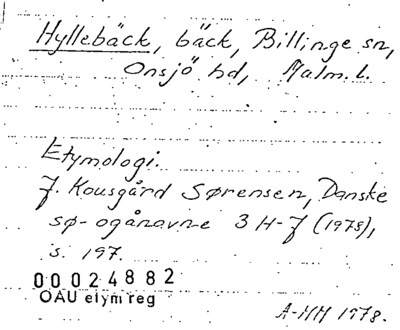 Hyllebäck, bäck, Billinge sn,
Onsjö hd, Malm. l.
Etymologi.
J. Kousgård Sørensen, Danske
sø- og ånavne 3 H-J (1978),
s. 197.
00024882
OAU etym reg
A-HH 1978.